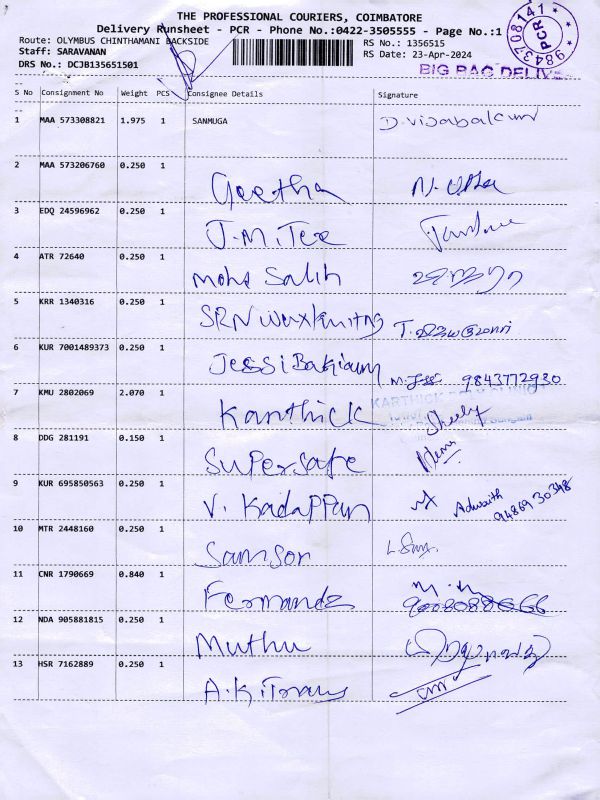 THE PROFESSIONAL COURIERS, COIMBATORE
Delivery Runsheet - PCR - Phone No.:0422-3505555 - Page No.:1
Route: OLYMBUS CHINTHAMANI BACKSIDE
RS No.: 1356515
Staff: SARAVANAN
RS Date: 23-Apr-2024
DRS No.: DCJB13651501
BIG BAG DELIVE
PCR
9843708141
S No Consignment No Weight PCS Consignee Details Signature
1 MAA 573308821 1.975 1 SANMUGA
2 MAA 573206760 0.250 1 Geetha N. Usha
3 EDQ 24596962 0.250 1 J.M.Tex
4 ATR 72640 0.250 1 Mohd Salih
5 KRR 1340316 0.250 1 T.
6 KUR 7001489373 0.250 1 Jessi Bakiaum 9843772930
7 KMU 2802069 2.070 1 Karthick
KARTHICK
8 DDG 281191 0.150 1 Supersafe
9 KUR 695850563 0.250 1 V. Kadappan Adwaith
9486930348
10 MTR 2448160 0.250 1 Samson
11 CNR 1790669 0.840 1 Fernandz
12 NDA 905881815 0.250 1 Muthu
13 HSR 7162889 0.250 1